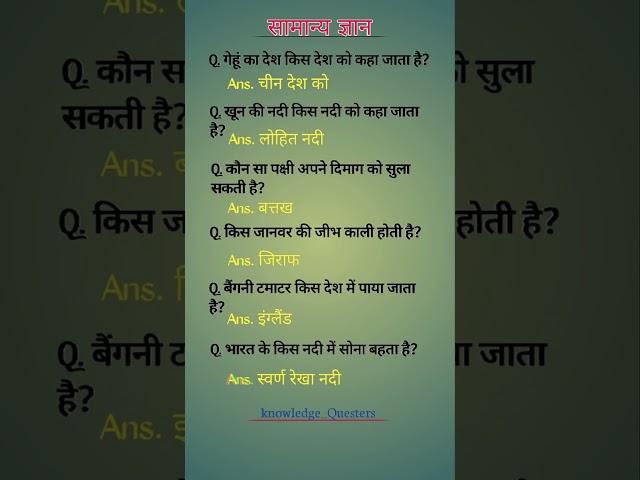 सामान्य ज्ञान
Q. गेहूं का देश किस देश को कहा जाता है?
Ans. चीन देश को
Q. खून की नदी किस नदी को कहा जाता
है?
Ans. लोहित नदी
Q. कौन सा पक्षी अपने दिमाग को सुला
सकती है?
Ans. बत्तख
Q. किस जानवर की जीभ काली होती है?
Ans. जिराफ
Q. बैंगनी टमाटर किस देश में पाया जाता
है?
Ans. इंग्लैंड
Q. भारत के किस नदी में सोना बहता है?
Ans. स्वर्ण रेखा नदी
knowledge_Questers